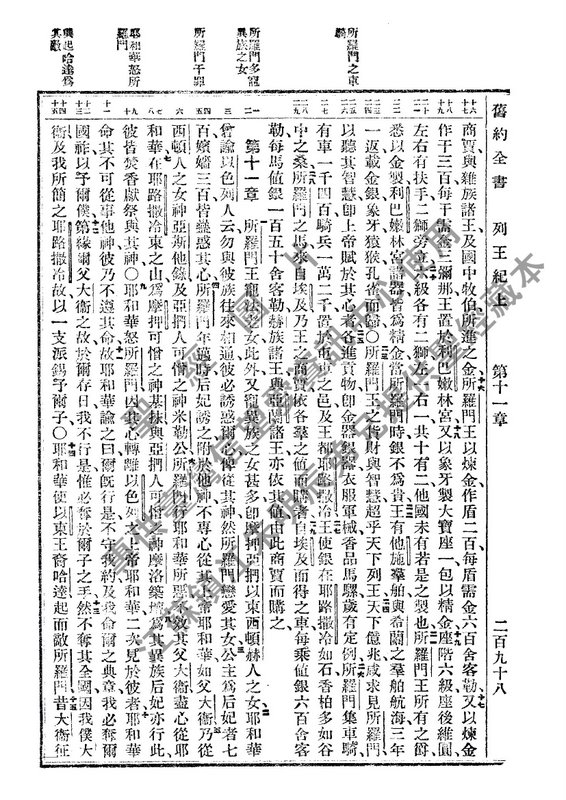 舊約全書
列王紀上
第十一章
二百九十八
所羅門之車騎
所羅門多寵異族之女
所羅門干罪
耶和華怒所羅門
興起哈達為其敵
商賈與雜族諸王及國中牧伯所進之金所羅門王以煉金作盾二百每盾需金六百舍客勒又以煉金
作干三百每干需金三彌那王置於利巴嫩林宮又以象牙製大寶座一包以精金座階六級座後維圓
左右有扶手二獅旁立六級各有二獅左右一共十有二他國未有若是之製也所羅門王所有之爵
悉以金製利巴嫩林宮諸器皆為精金當所羅門時銀不為貴王有他施羣舶與希蘭之羣舶航海三年
一返載金銀象牙猿猴孔雀而歸〇所羅門王之貨財與智慧超乎天下列王天下億兆咸求見所羅門
以聽其智慧卽上帝賦於其心者各進貢物卽金器銀器衣服軍械香品馬騾歲有定例所羅門集車騎
有車一千四百騎兵一萬二千置於屯車之邑及王都耶路撒冷王使銀在耶路撒冷如石香柏多如谷
中之桑所羅門之馬來自埃及乃王之商賈依各羣之値而購者自埃及而得之車每乘値銀六百舍客
勒每馬値銀一百五十舍客勒赫族諸王與亞蘭諸王亦依其値由此商賈而購之
第十一章 所羅門王寵法老之女此外又寵異族之女甚多卽摩押亞捫以東西頓赫人之女耶和華
曾諭以色列人云勿與彼族往來相通彼必誘惑爾心俾從其神然所羅門戀愛其女公主爲后妃者七
百嬪嬙三百皆蠱惑其心所羅門年邁時后妃誘之附於他神不專心從其上帝耶和華如父大衛乃從
西頓人之女神亞斯他錄及亞捫人可憎之神米勒公所羅門行耶和華所惡不效其父大衛盡心從耶
和華在耶路撒冷東之山爲摩押可憎之神基抹與亞捫人可憎之神摩洛築壇爲其異族后妃亦行此
彼皆焚香獻祭與其神〇耶和華怒所羅門因其心轉離以色列之上帝耶和華二次見於彼者耶和華
命其不可從事他神彼乃不遵其命故耶和華諭之曰爾旣行是不守我約及我命爾之典章我必奪爾
國祚以予爾僕第緣爾父大衛之故於爾存日我不行是惟必奪於爾子之手然不奪其全國因我僕大
衛及我所簡之耶路撒冷故以一支派錫予爾子〇耶和華使以東王裔哈達起而敵所羅門昔大衛征